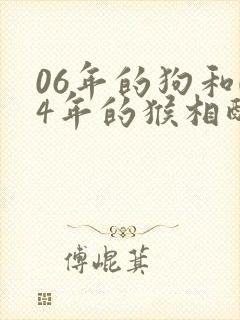 06年的狗和
4年的猴相
傅崐萁